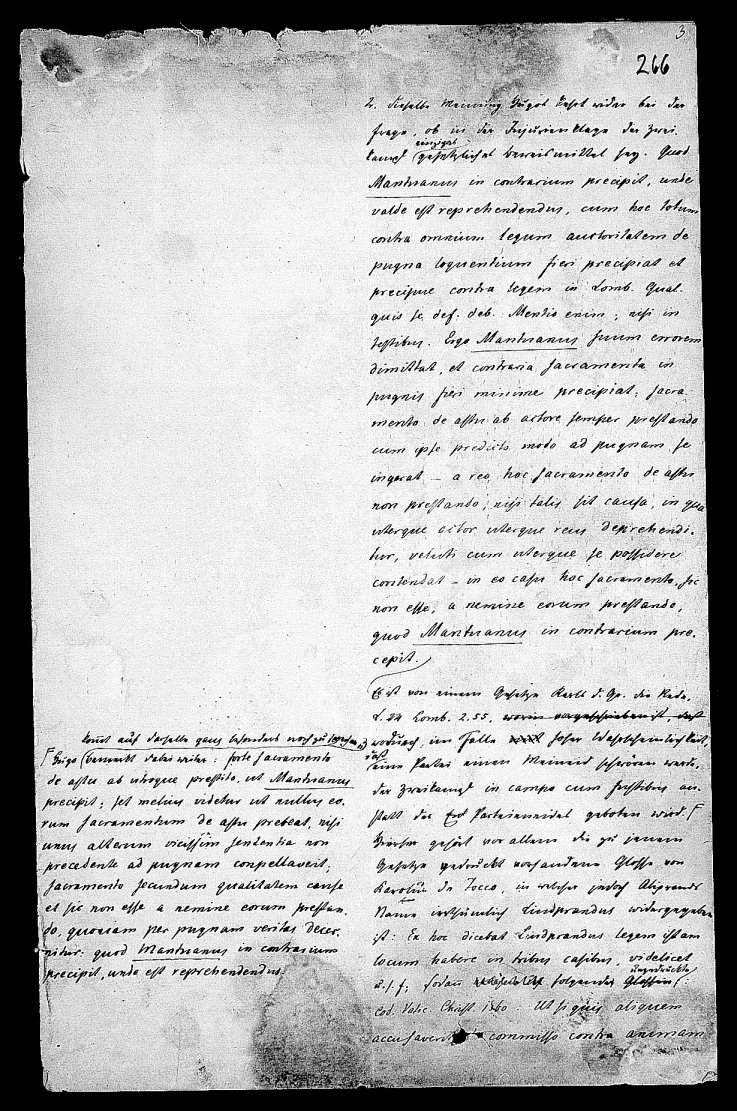 3
266
2. dieselbe Meinung Hugos kehrt wider bei der
Frage, ob in der Injurienklage der Zwei-
kampf einziges gesetzliches Beweismittel sey. Quod
Mantuanus in contrarium precipit, unde
valde est reprehendendus, cum hoc totum
contra omnium legum auctoritatem de
pugna loquentium fieri precipiat et
precipue contra legem in Lomb. Qual.
quis se def. deb. Mentio enim; nisi in
testibus. Ergo Mantuanus suum errorem
dimittat, et contraria sacramenta in
pugnis fieri minime precipiat; sacra-
mento de astu ab actore semper prestando
cum ipse predicto modo ad pugnam se
ingerat – a reo hoc sacramento de astu
non prestando; nisi talis sit causa, in qua
uterque actor uterque reus deprehendi-
tur, veluti cum uterque se possidere
contendat – in eo casu hoc sacramento, sic
non esse, a nemine eorum prestando,
quod Mantuanus in contrarium pre-
cepit.
Es ist von einem Gesetze Karls d. Gr. die Rede,
L. 24 Lomb. 2.55,
wodurch, im Falle hoher Wahrscheinlichkeit,
eine Partei einen Meineid schwören werde,
der Zweikampf in campo cum fustibus an-
statt des Parteieneides geboten wird.
Hierher gehört vor allem die zu jenem
Gesetze gedruckt vorhandene Glosse von
Karolus de Tocco, in welcher jedoch Aliprands
Name irrthümlich Liudprandus widergegeben
ist: Ex hoc dicebat Liudprandus legem istam
locum habere in tribus casibus, videlicet
u.s.f; sodann folgende ungedruckte Glossen:
cod. Vatic. Christ. 1060. Ut si quis aliquem
accusaverit commisso contra animam
komt auf dasselbe ganz besonders noch zu sprechen
Hugo bemerkt dabei weiter: forte sacramento
de astu ab utroque prestito, ut Mantuanus
precipit; set melius videtur ut nullus eo-
rum sacramentum de astu prebeat, nisi
unus alterum vicissim sententia non
precedente ad pugnam conpellaverit;
sacramento secundum qualitatem cause
et sic non esse a nemine eorum prestan-
do, quoniam per pugnam veritas decer-
nitur: quod Mantuanus in contrarium
precipit, unde est reprehendendus.